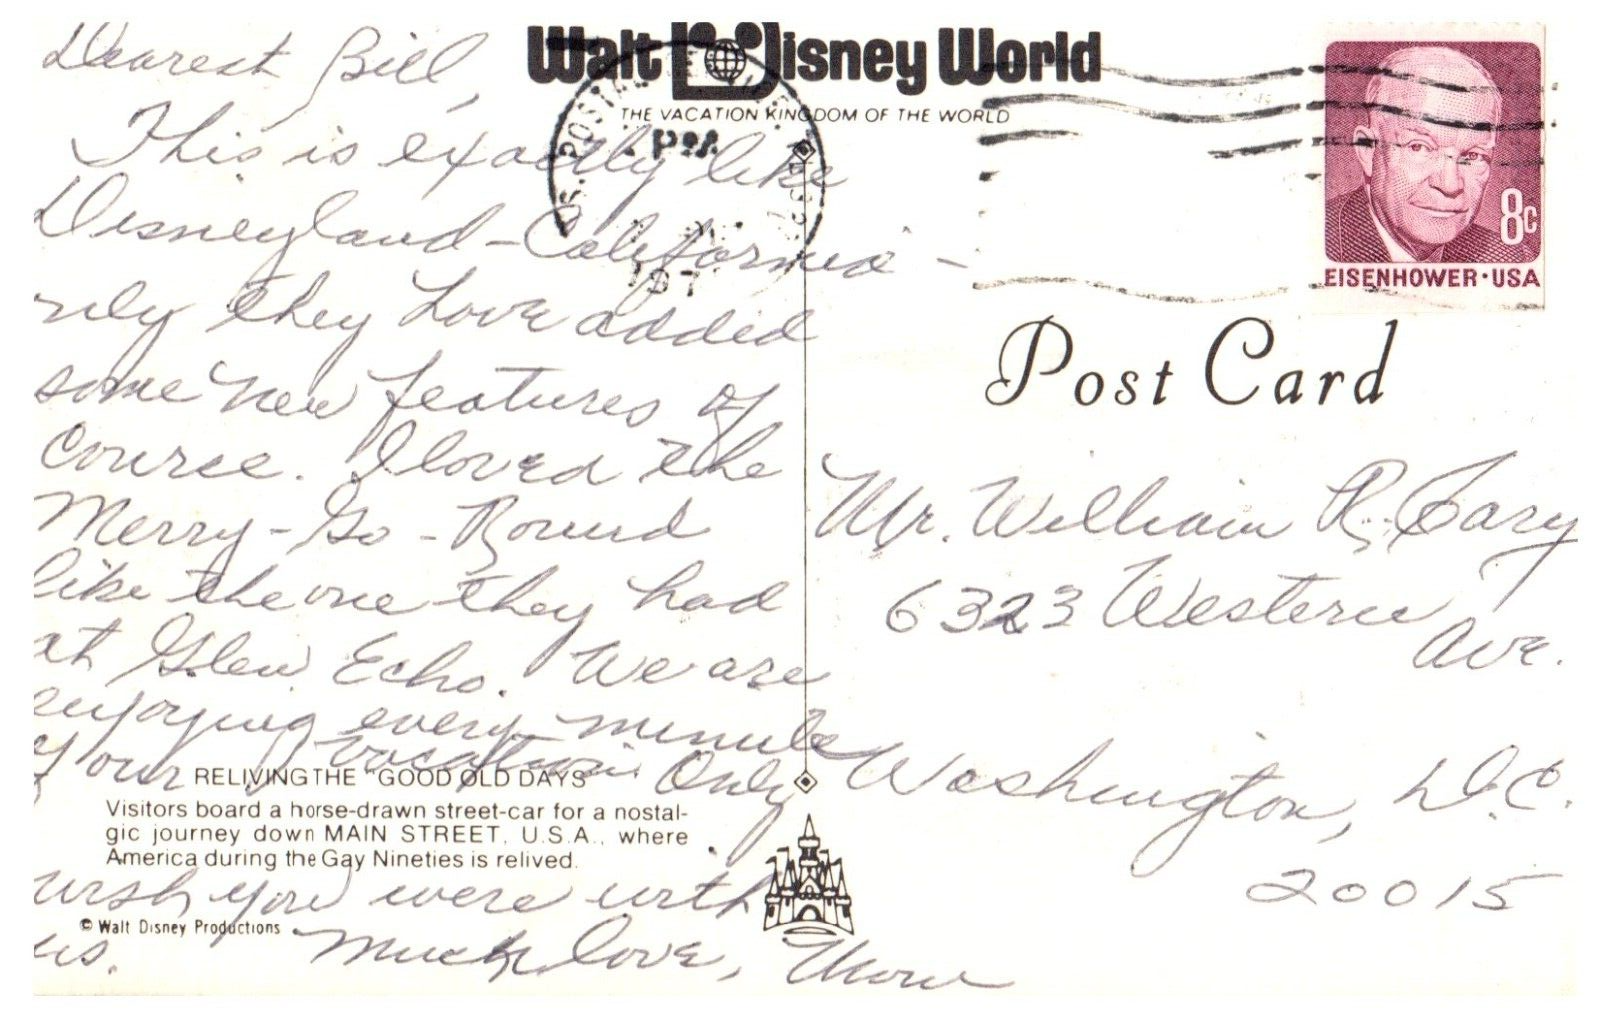 Walt Disney World
THE VACATION KINGDOM OF THE WORLD
U.S. POSTAL
PM
197
8c
EISENHOWER·USA
Post Card
Dearest Bill,
This is exactly like
Disneyland - California -
nly they have added
some new features of
course. I loved the
Merry-Go-Round
like the one they had
at Glen Echo. We are
enjoying every minute
of our vacation. Only
wish you were with
us. Much love, Mom
Mr. William R. Cary
6323 Western
Ave.
Washington, D.C.
20015
RELIVING THE "GOOD OLD DAYS"
Visitors board a horse-drawn street-car for a nostal-
gic journey down MAIN STREET, U.S.A., where
America during the Gay Nineties is relived.
© Walt Disney Productions